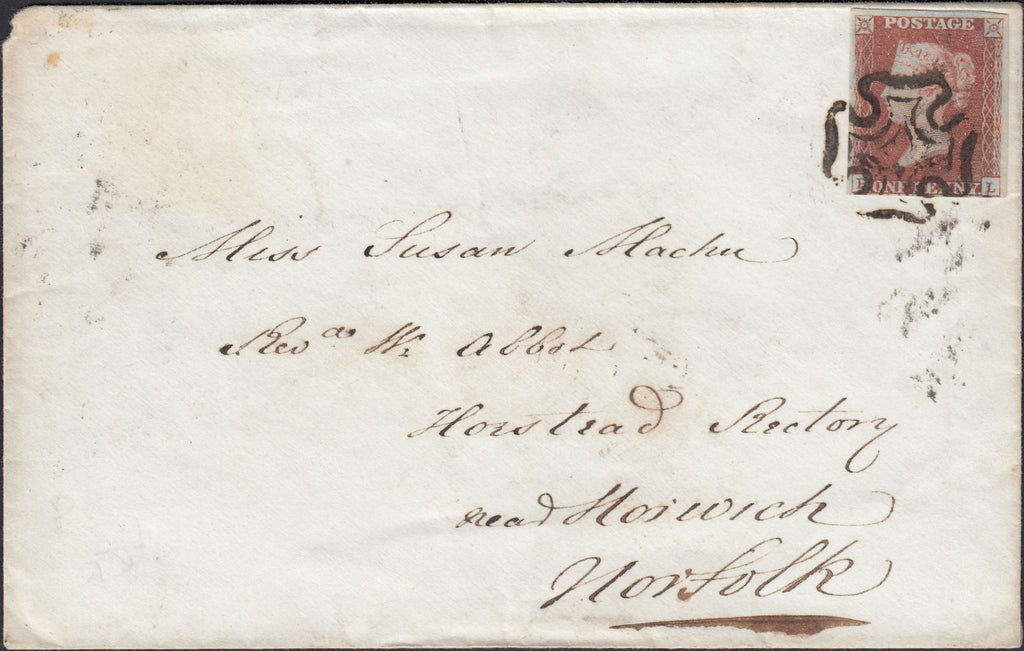 POSTAGE
ONE PENNY L
Miss Susan Machu
Revd W. Abbot
Horstead Rectory
near Norwich
Norfolk